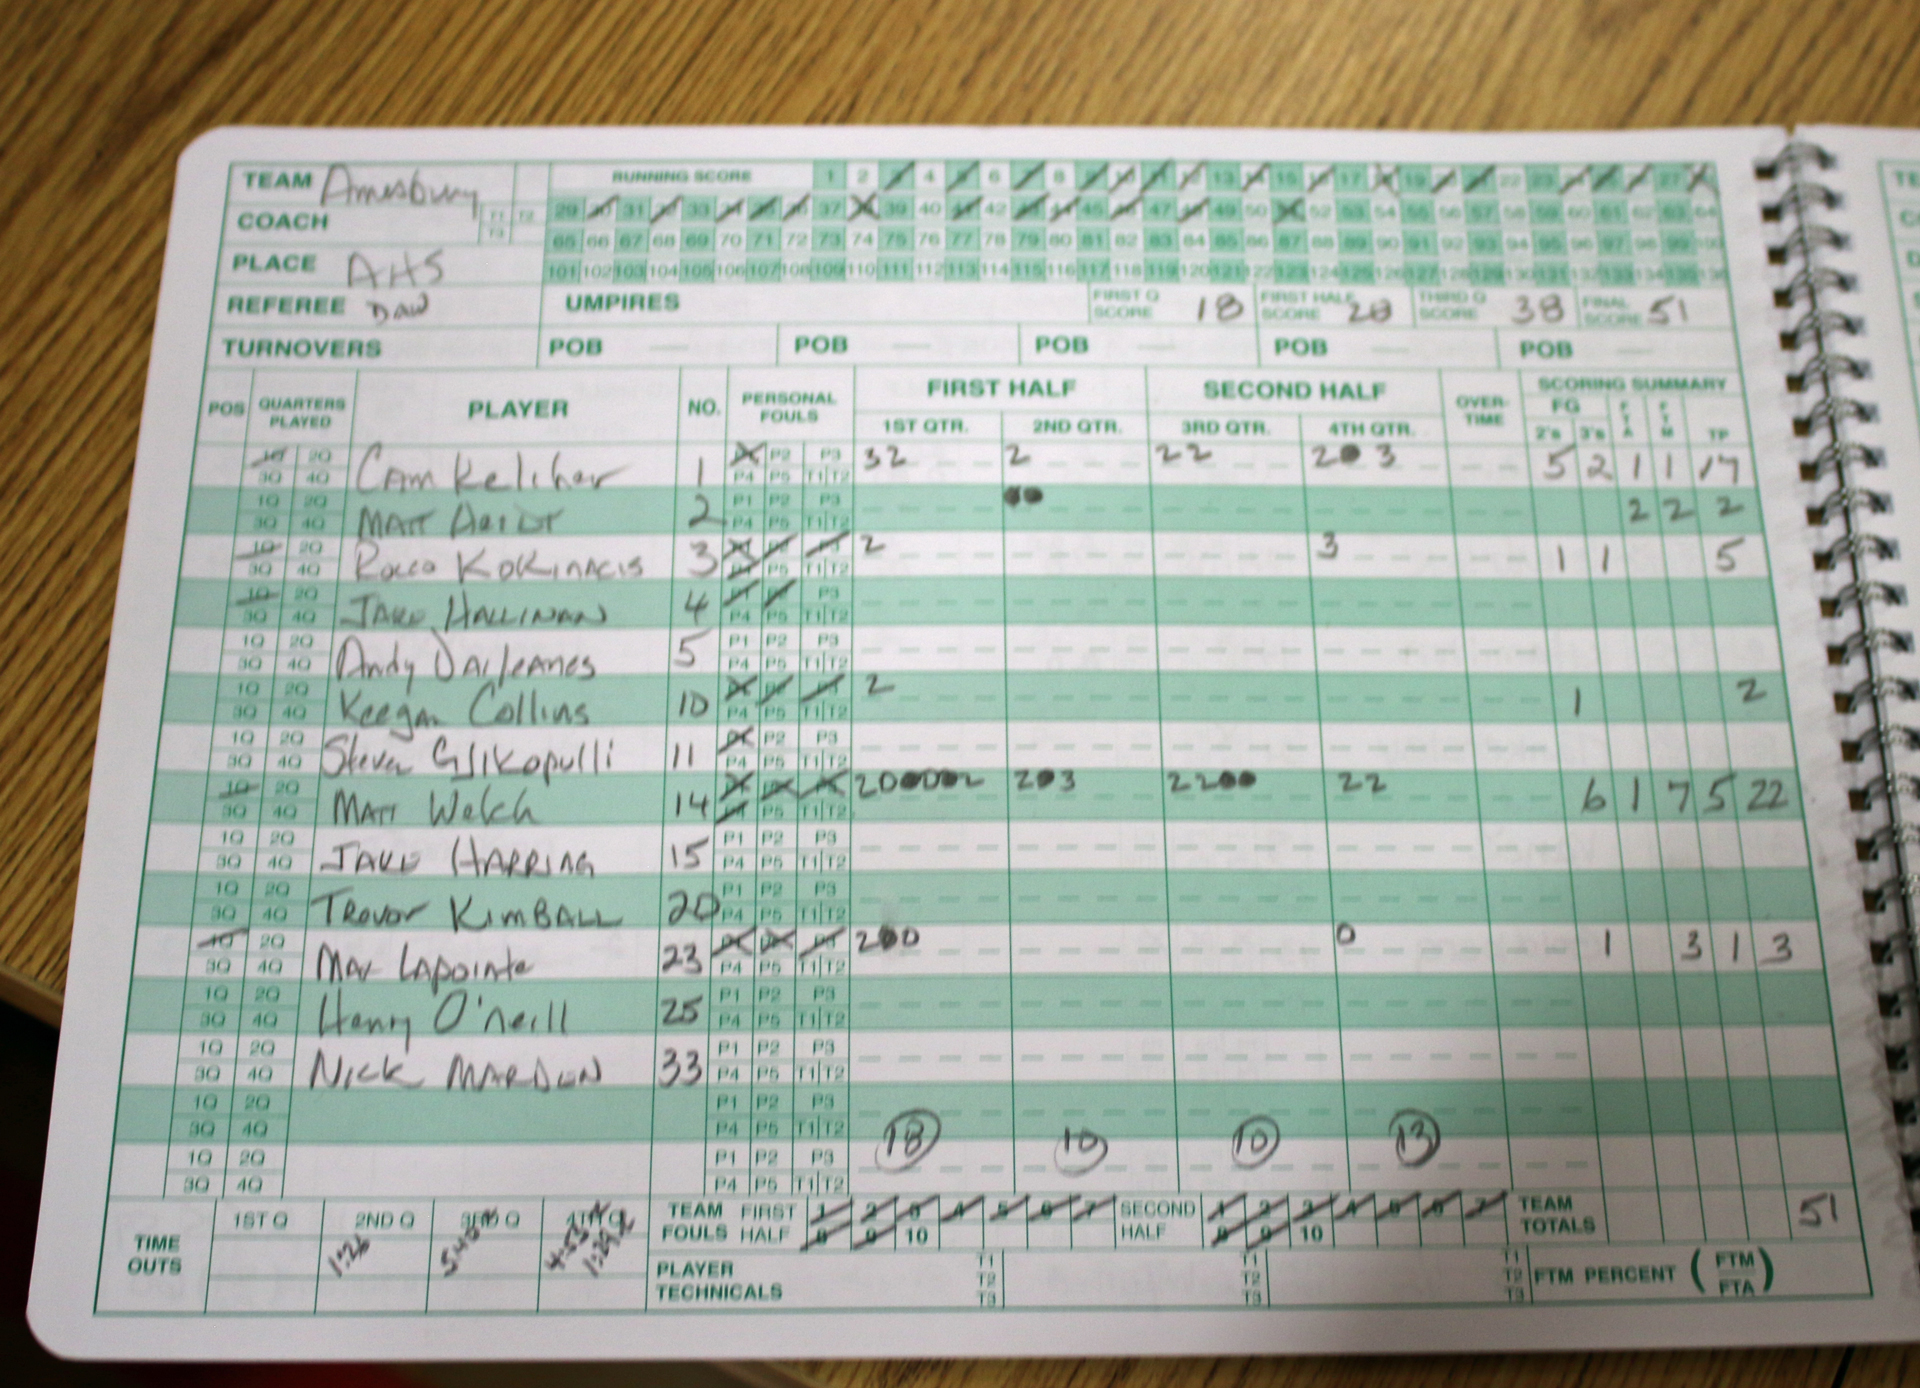 TEAM Amesbury RUNNING SCORE 1 2 3 4 5 6 7 8 9 10 11 12 13 14 15 16 17 18 19 20 21 22 23 24 25 26 27 28
COACH T1 T2 T3 29 30 31 32 33 34 35 36 37 38 39 40 41 42 43 44 45 46 47 48 49 50 51 52 53 54 55 56 57 58 59 60 61 62 63 64
65 66 67 68 69 70 71 72 73 74 75 76 77 78 79 80 81 82 83 84 85 86 87 88 89 90 91 92 93 94 95 96 97 98 99 100
PLACE AHS 101 102 103 104 105 106 107 108 109 110 111 112 113 114 115 116 117 118 119 120 121 122 123 124 125 126 127 128 129 130 131 132 133 134 135 136
REFEREE DAW UMPIRES FIRST Q SCORE 18 FIRST HALF SCORE 28 THIRD Q SCORE 38 FINAL SCORE 51
TURNOVERS POB POB POB POB POB
POS QUARTERS PLAYED PLAYER NO. PERSONAL FOULS FIRST HALF SECOND HALF OVER-TIME SCORING SUMMARY
1ST QTR. 2ND QTR. 3RD QTR. 4TH QTR. FG 2's 3's FTA FTM TP
1Q 2Q 3Q 4Q Cam Kelcher 1 P1 P2 P3 P4 P5 T1 T2 32 2 22 2 3 5 2 1 1 17
1Q 2Q 3Q 4Q MATT 2 P1 P2 P3 P4 P5 T1 T2 2 2 2
1Q 2Q 3Q 4Q Rocco KoKinacis 3 P1 P2 P3 P4 P5 T1 T2 2 3 1 1 5
1Q 2Q 3Q 4Q JAKE HALLINAN 4 P1 P2 P3 P4 P5 T1 T2
1Q 2Q 3Q 4Q Andy 5 P1 P2 P3 P4 P5 T1 T2
1Q 2Q 3Q 4Q Keegan Collins 10 P1 P2 P3 P4 P5 T1 T2 2 1 2
1Q 2Q 3Q 4Q Steven Gjikopulli 11 P1 P2 P3 P4 P5 T1 T2
1Q 2Q 3Q 4Q MATT Welch 14 P1 P2 P3 P4 P5 T1 T2 200002 203 2200 22 6 1 7 5 22
1Q 2Q 3Q 4Q JAKE HARRING 15 P1 P2 P3 P4 P5 T1 T2
1Q 2Q 3Q 4Q TREVOR KIMBALL 20 P1 P2 P3 P4 P5 T1 T2
1Q 2Q 3Q 4Q Max LAPointe 23 P1 P2 P3 P4 P5 T1 T2 200 0 1 3 1 3
1Q 2Q 3Q 4Q Henry O'neill 25 P1 P2 P3 P4 P5 T1 T2
1Q 2Q 3Q 4Q Nick MARDEN 33 P1 P2 P3 P4 P5 T1 T2
1Q 2Q 3Q 4Q P1 P2 P3 P4 P5 T1 T2 18 10 10 13
1Q 2Q 3Q 4Q P1 P2 P3 P4 P5 T1 T2
TIME OUTS 1ST Q 2ND Q 1:26 3RD Q 4TH Q
TEAM FOULS FIRST HALF 1 2 3 4 5 6 7 8 9 10 SECOND HALF 1 2 3 4 5 6 7 8 9 10 TEAM TOTALS 51
PLAYER TECHNICALS T1 T2 T3 T1 T2 T3 T1 T2 T3 FTM PERCENT (FTM FTA)